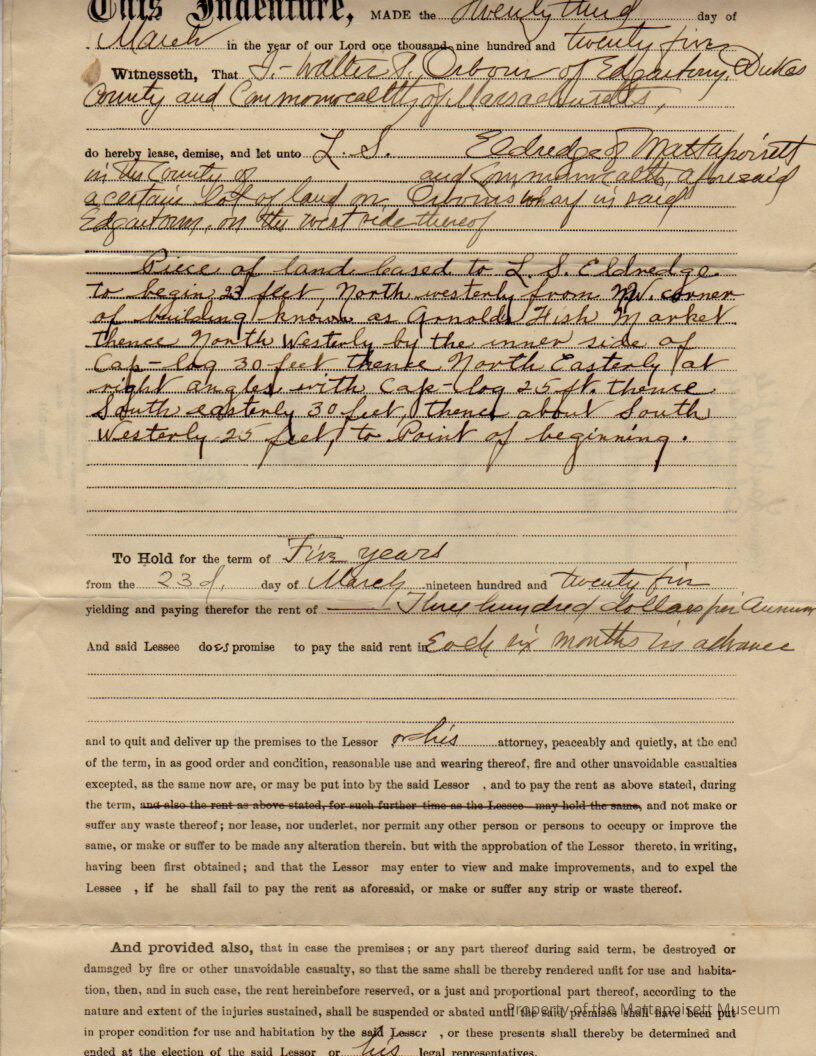 This Indenture, MADE the Twenty third day of
March in the year of our Lord one thousand nine hundred and twenty five
Witnesseth, That I - Walter S. Osborn of Edgartown, Dukes
County and Commonwealth of Massachusetts,
do hereby lease, demise, and let unto L. S. Eldredge of Mattapoisett
in the County of and Commonwealth aforesaid
a certain lot of land on Osborns wharf in said
Edgartown, on the west side thereof
Piece of land leased to L. S. Eldredge
to begin 23 feet North westerly from N.W. corner
of building known as Arnolds Fish Market
thence North Westerly by the inner side of
Cap-log 30 feet thence North Easterly at
right angles with Cap-log 25 ft. thence
South easterly 30 feet, thence about South
Westerly 25 feet, to Point of beginning.
To Hold for the term of Five years
from the 23d. day of March nineteen hundred and twenty five
yielding and paying therefor the rent of Three hundred dollars per Annum
And said Lessee does promise to pay the said rent in Each six months in advance
and to quit and deliver up the premises to the Lessor or his attorney, peaceably and quietly, at the end
of the term, in as good order and condition, reasonable use and wearing thereof, fire and other unavoidable casualties
excepted, as the same now are, or may be put into by the said Lessor , and to pay the rent as above stated, during
the term, and also the rent as above stated, for such further time as the Lessee may hold the same, and not make or
suffer any waste thereof; nor lease, nor underlet, nor permit any other person or persons to occupy or improve the
same, or make or suffer to be made any alteration therein, but with the approbation of the Lessor thereto, in writing,
having been first obtained; and that the Lessor may enter to view and make improvements, and to expel the
Lessee , if he shall fail to pay the rent as aforesaid, or make or suffer any strip or waste thereof.
And provided also, that in case the premises; or any part thereof during said term, be destroyed or
damaged by fire or other unavoidable casualty, so that the same shall be thereby rendered unfit for use and habita-
tion, then, and in such case, the rent hereinbefore reserved, or a just and proportional part thereof, according to the
nature and extent of the injuries sustained, shall be suspended or abated until the said premises shall have been put
Property of the Mattapoisett Museum
in proper condition for use and habitation by the said Lessor , or these presents shall thereby be determined and
ended at the election of the said Lessor or his legal representatives.